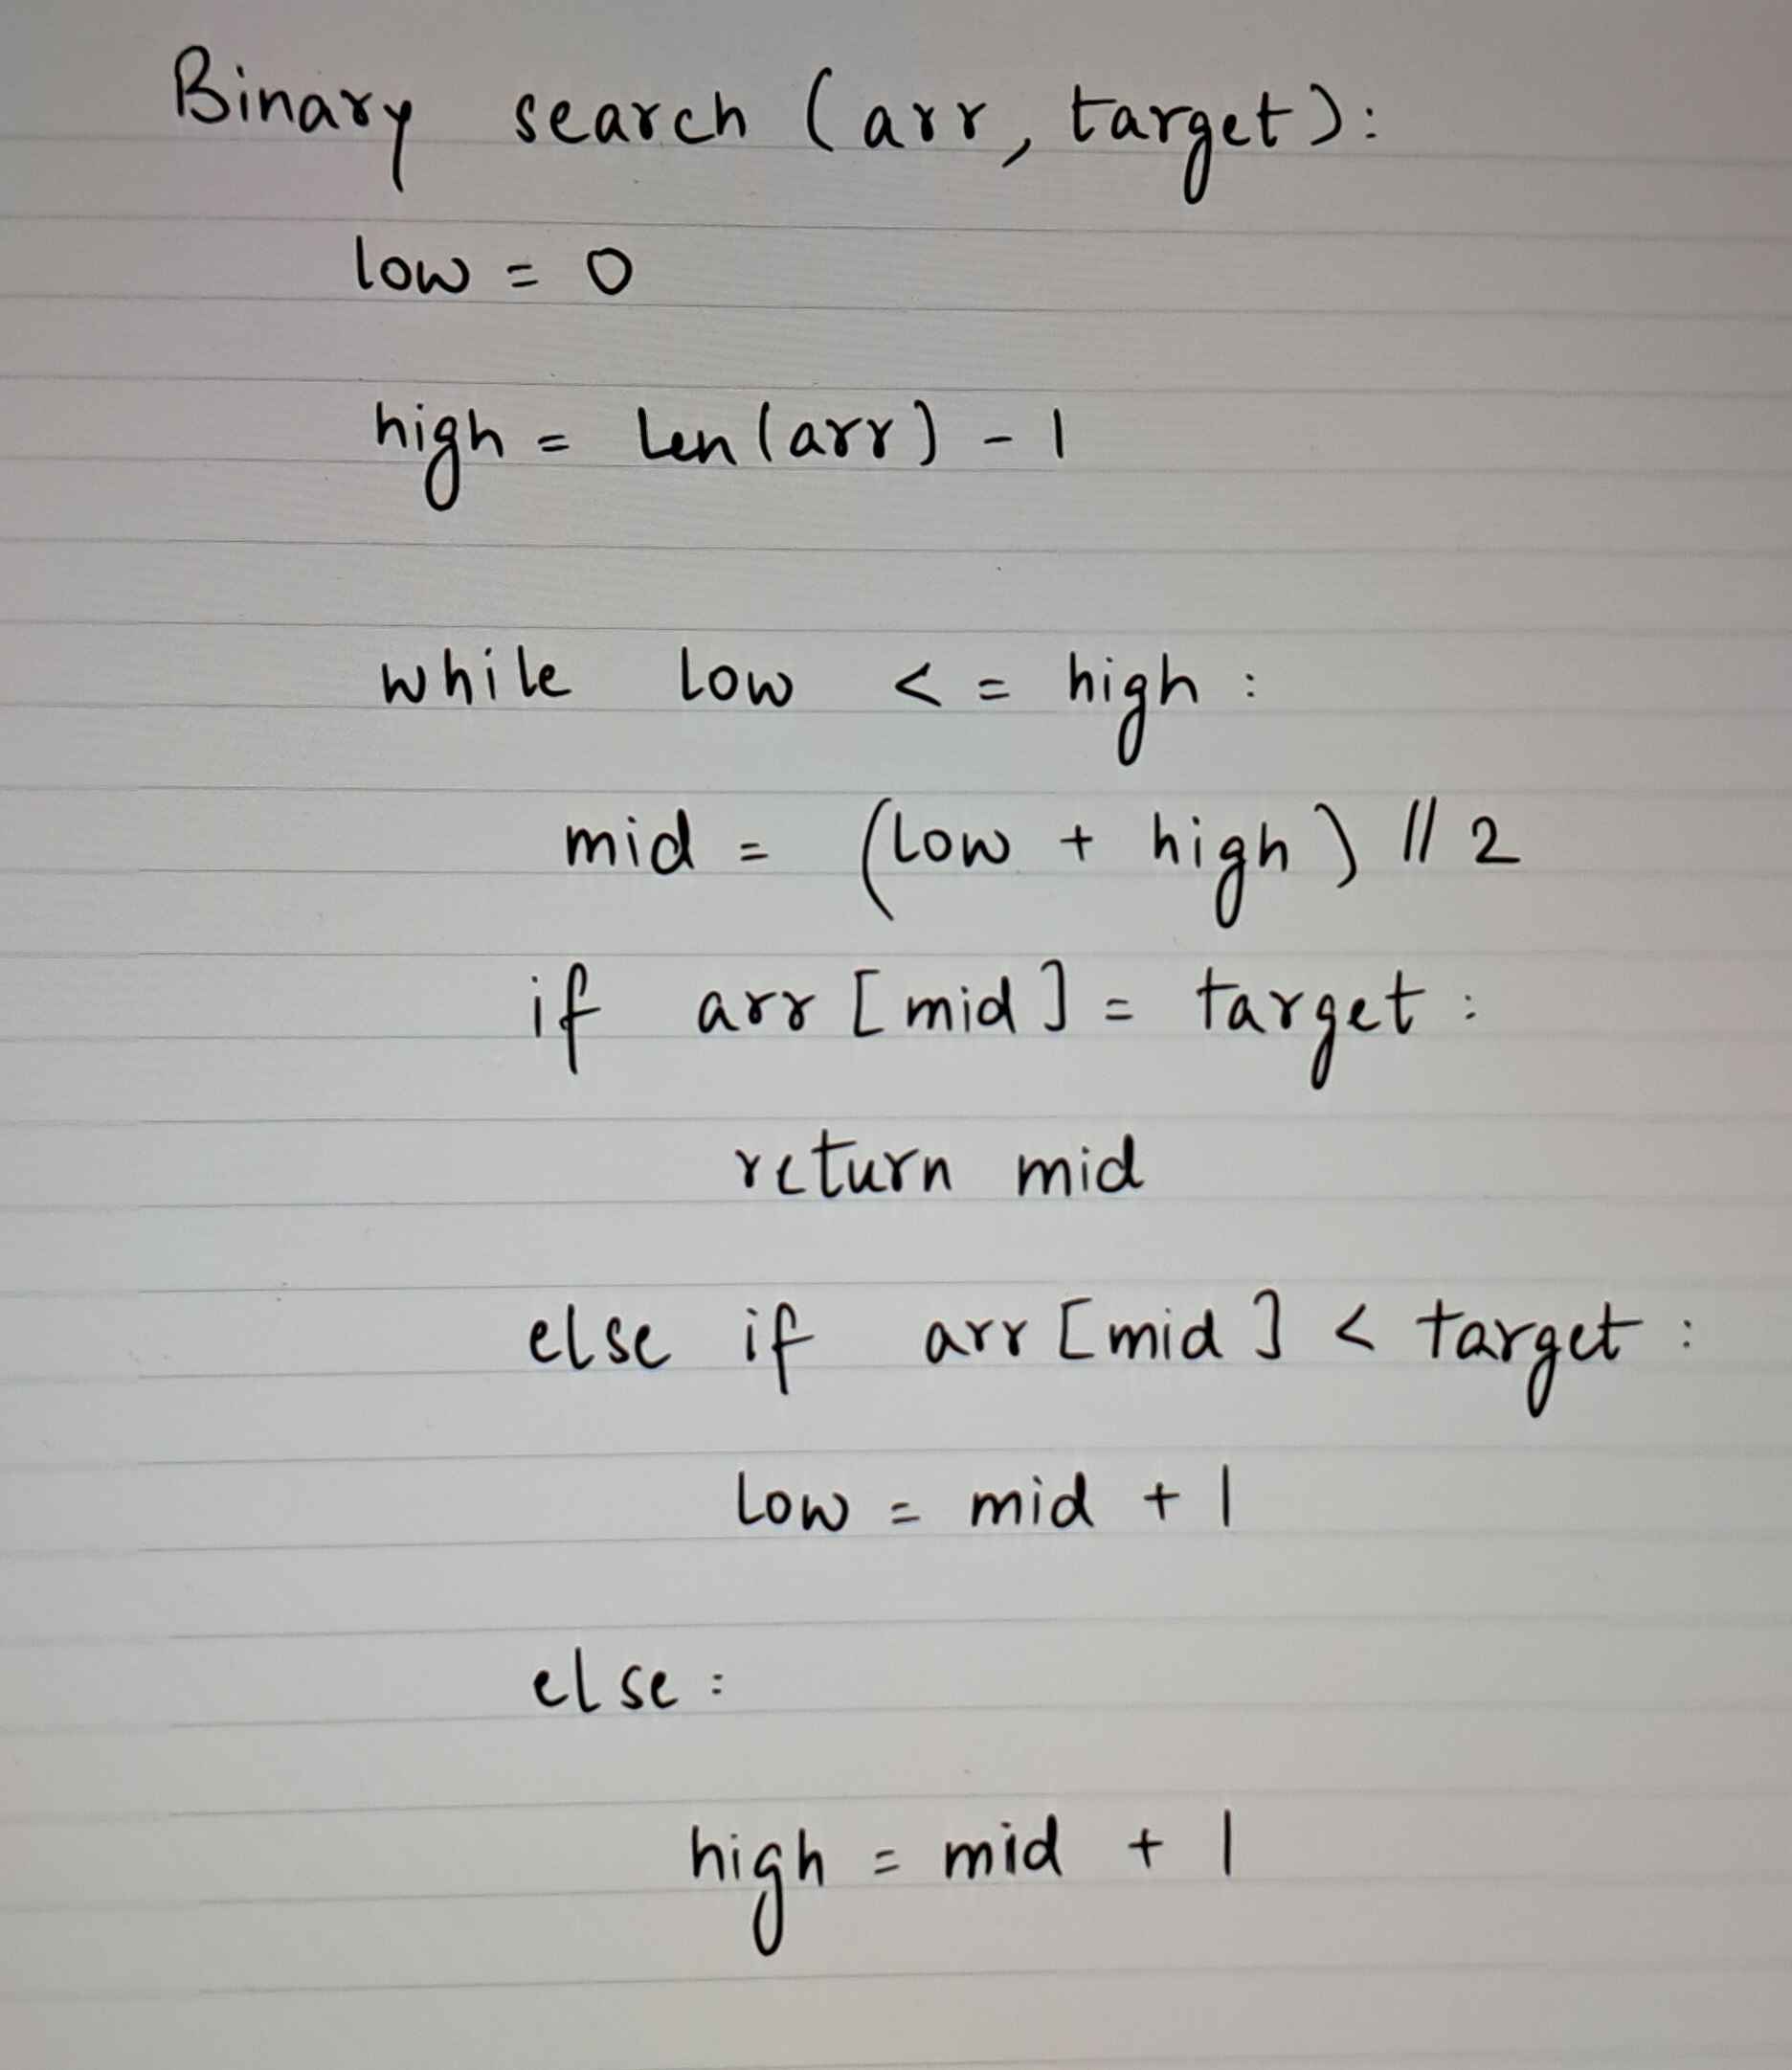 Binary search (arr, target):
low = 0
high = len(arr) - 1
while low <= high :
mid = (low + high) // 2
if arr [mid] = target :
return mid
else if arr [mid] < target :
low = mid + 1
else :
high = mid + 1